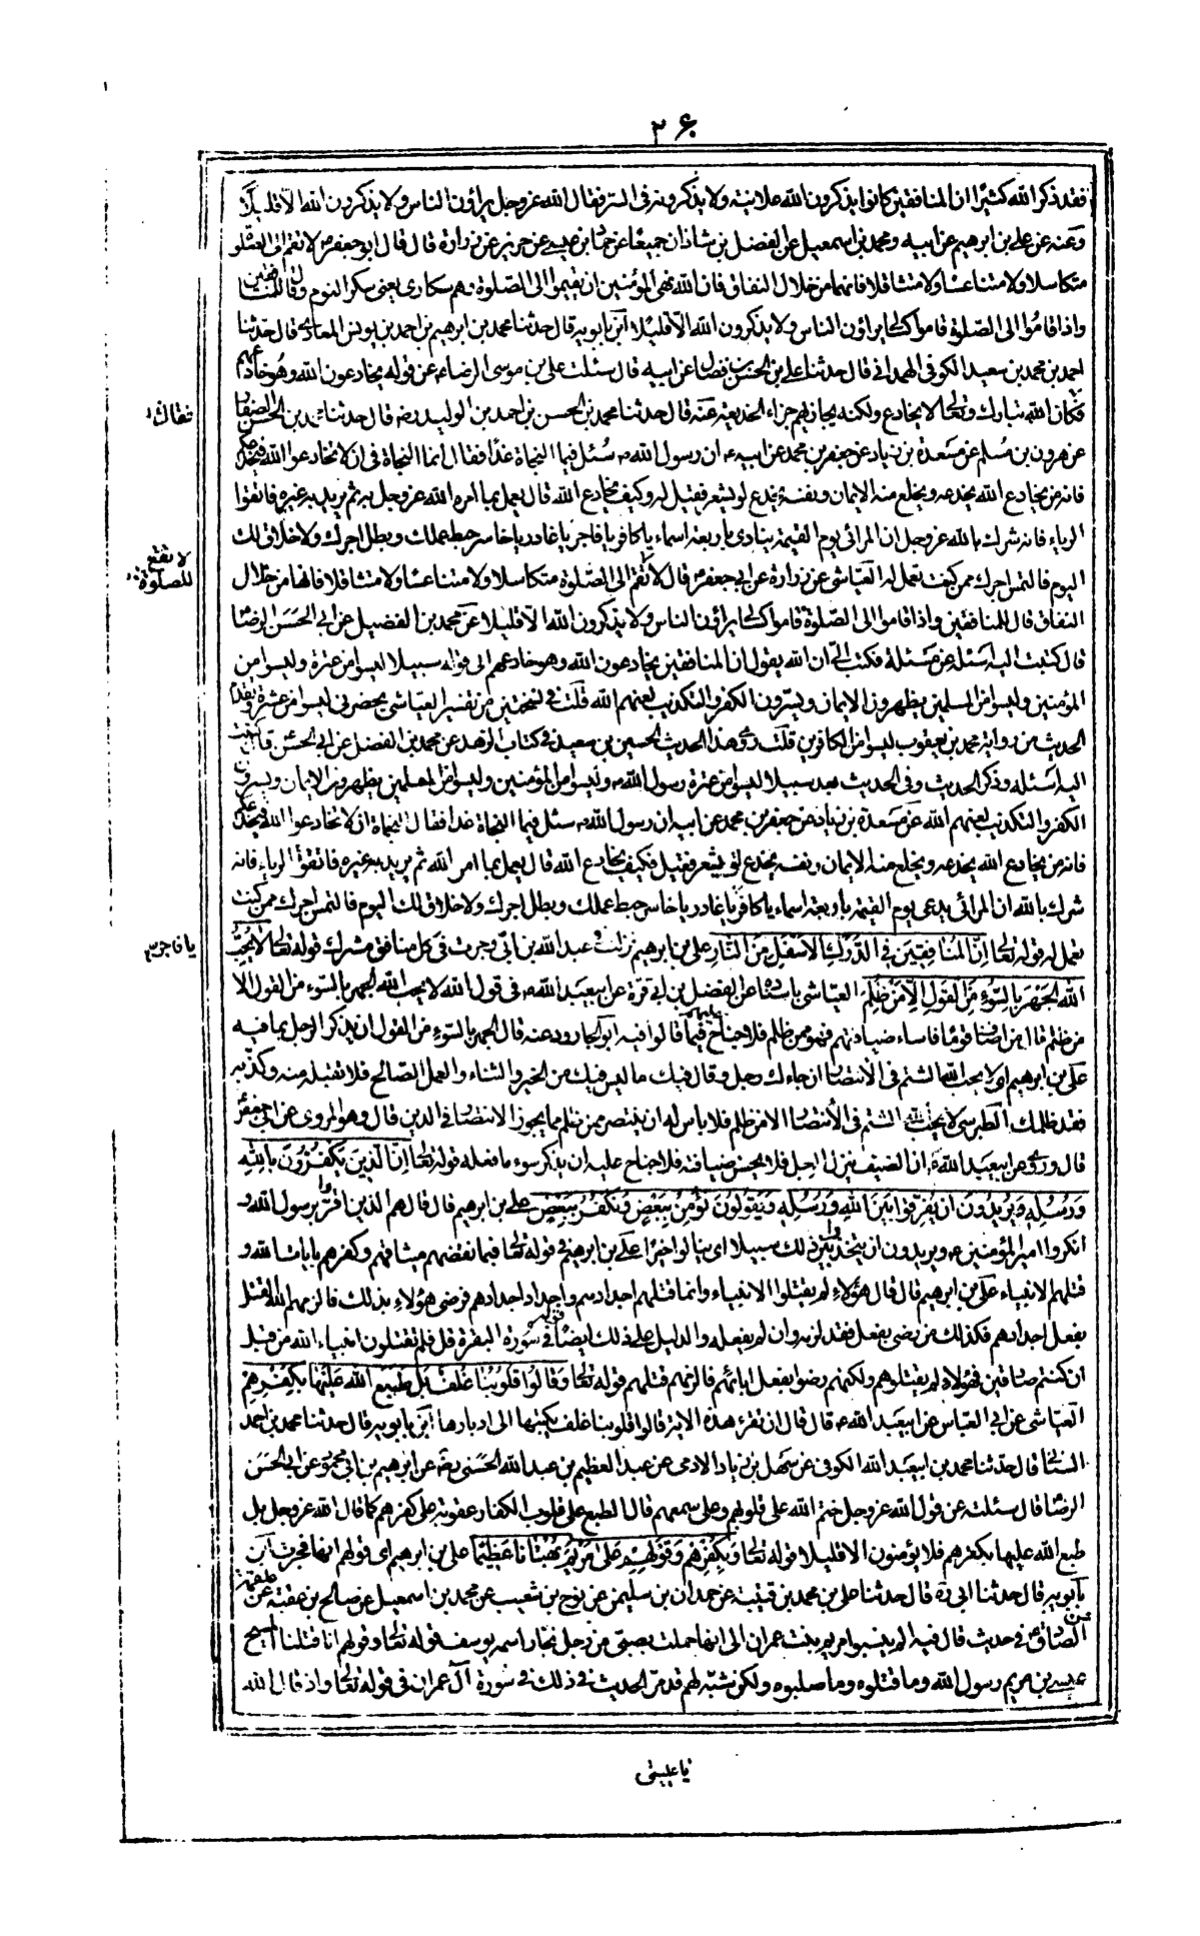 ٢۶
فقد ذكر الله كثيرًا ان المنافقين كانوا يذكرون الله علانية ولا يذكرونه فى السر فقال الله عزوجل يراؤن الناس ولا يذكرون الله الا قليلا
وعنه عن على بن ابرهيم عن ابيه ومحمد بن اسمعيل عن الفضل بن شاذان جميعًا عن حماد بن عيسى عن حريز عن زرارة قال قال ابوجعفر ع لا تقم الى الصلوة
متكاسلا ولا متناعسًا ولا متثاقلا فانها من خلال النفاق فان الله نهى المؤمنين ان يقيموا الى الصلوة وهم سكارى يعنى سكر النوم وقال للمنافقين
واذا قامُوا الى الصّلوة قاموا كسالى يراؤن الناس ولا يذكرون الله الا قليلًا ابن بابويه قال حدثنا محمد بن ابرهيم بن احمد بن يونس المعاذى قال حدثنا
احمد بن محمد بن سعيد الكوفى الهمدانى قال حدثنا على بن الحسن بن فضال عن ابيه قال سئلت على بن موسى الرضا ع عن قوله يخادعون الله وهو خادعهم
فقال ان الله تبارك وتعالى لا يخادع ولكنه يجازيهم جزاء الخديعة عنه قال حدثنا محمد بن الحسن بن احمد بن الوليد ره قال حدثنا محمد بن الحسن الصفار
فقال ع
عن هرون بن مُسلم عن مسعدة بن زياد عن جعفر بن محمد عن ابيه ع ان رسول الله ص سُئل فيما النجاة غدًا فقال انما النجاة فى ان لا تخادعوا الله فيخدعكم
فانه من يخادع الله يخدعه ويخلع منه الايمان ونفسه يخدع لو يشعر فقيل له وكيف يخادع الله قال يعمل بما امره الله عزوجل به ثم يريد به غيره فاتقوا
الرياء فانه شرك بالله عزوجل ان المرائى يوم القيمة ينادى باربعة اسماء يا كافر يا فاجر يا غادر يا خاسر حبط عملك وبطل اجرك ولا خلاق لك
اليوم فالتمس اجرك ممن كنت تعمل له العياشى عن زرارة عن ابى جعفر ع قال لا تقم الى الصّلوة متكاسلا ولا متناعسًا ولا متثاقلا فانها من خلال
لا تقم
للصلوة
النفاق قال للمنافقين واذا قاموا الى الصّلوة قاموا كسالى يراؤن الناس ولا يذكرون الله الا قليلا عن محمد بن الفضيل عن ابى الحسن الرضا
قال كتبت اليه اسئله عن مسئلة فكتب الىّ ان الله يقول ان المنافقين يخادعون الله وهو خادعهم الى قوله سبيلا ليسوا من عترة وليسوا من
المؤمنين وليسوا من المسلمين يظهرون الايمان ويسرّون الكفر والتكذيب لعنهم الله قلت فى نسختين من تفسير العياشى بحضرتى ليسوا من عترة
الحديث من رواية محمد بن يعقوب ليسوا من الكافرين قلت روى هذا الحديث الحسين بن سعيد فى كتاب الزهد عن محمد بن الفضل عن ابى الحسن قال كتبت
اليه اسئله وذكر الحديث وفى الحديث بعد سبيلا ليسوا من عترة رسول الله ص وليسوا من المؤمنين وليسوا من المسلمين يظهرون الايمان ويسرون
الكفر والتكذيب لعنهم الله عن مسعدة بن زياد عن جعفر بن محمد عن ابيه ان رسول الله ص سئل فيما النجاة غدا فقال النجاة ان لا تخادعوا الله فيخدعكم
فانه من يخادع الله يخدعه ويخلع منه الايمان ونفسه يخدع لو يشعر فقيل فكيف يخادع الله قال يعمل بما امر الله ثم يريد به غيره فاتقوا الرياء فانه
شرك بالله ان المرائى يدعى يوم القيمة باربعة اسماء يا كافر يا غادر يا خاسر حبط عملك وبطل اجرك ولا خلاق لك اليوم فالتمس اجرك ممن كنت
تعمل له قوله تعالى اِنّ المُنافِقِينَ فِى الدَّرَكِ الاَسْفَلِ مِنَ النّارِ على بن ابرهيم نزلت فى عبد الله بن ابىّ وجرت فى كل منافق مشرك قوله تعالى لا يُحِبُّ
يا فاجر
الله الجَهَرَ بِالسّوءِ مِنَ القولِ اِلّا مَنْ ظُلِمَ العياشى باسناده عن الفضل بن ابى قرة عن ابيعبد الله ع فى قول الله لا يحب الله الجهر بالسوء من القول الا
من ظلم قال من اضاف قومًا فاساء ضيافتهم فهو ممن ظلم فلا جناح عليهم فيما قالوا فيه ابو الجارود عنه قال الجهر بالسوء من القول ان يذكر الرجل بما فيه
على بن ابرهيم اى لا يحب الله الشتم فى الانتصار ان جاءك رجل وقال فيك ما ليس فيك من الخير والثناء والعمل الصالح فلا تقبله منه وكذّبه
فقد ظلمك الطبرسى لا يحب الله الشتم فى الانتصار الا من ظلم فلا باس له ان ينتصر ممن ظلم مما يجوز الانتصار فى الدين قال وهو المروى عن ابى جعفر
قال وروى عن ابيعبد الله ع ان الضيف ينزل الرجل فلا يحسن ضيافته فلا جناح عليه ان يذكر سوء ما فعله قوله تعالى اِنّ الّذينَ يَكفُرُونَ بِاللهِ
وَرُسُلِهِ وَيُرِيدُونَ اَن يُفَرِّقوا بَيْنَ اللهِ وَرُسُلِهِ وَيَقُولُونَ نُؤْمِنُ بِبَعْضٍ وَنَكفُرُ بِبَعْضٍ على بن ابرهيم قال قال هم الذين اقرّوا برسول الله ص
انكروا امير المؤمنين ع ويريدون ان يتخذوا بين ذلك سبيلا اى ينالوا خيرًا على بن ابرهيم فى قوله تعالى فبما نقضهم ميثاقهم وكفرهم بايات الله و
قتلهم الانبياء على بن ابرهيم قال قال هؤلاء لم يقتلوا الانبياء وانما قتلهم اجدادهم واجداد اجدادهم فرضى هؤلاء بذلك فالزمهم الله القتل
بفعل اجدادهم فكذلك من رضى بفعل فقد لزمه وان لم يفعله والدليل على ذلك ايضًا فى سورة البقرة قل فلم تقتلون انبياء الله من قبل
ان كنتم صادقين فهؤلاء لم يقتلوهم ولكنهم رضوا بفعل ابائهم فالزمهم قتلهم قوله تعالى وَقالوا قلوبُنا غُلفٌ بَل طَبَعَ الله عَلَيْها بِكُفْرِهِم
العياشى عن ابى العباس عن ابيعبد الله ع قال قال ان تقرء هذه الاية قالوا قلوبنا غلف يكتبها الى ادبارها ابن بابويه قال حدثنا محمد بن احمد
السنانى قال حدثنا محمد بن ابيعبد الله الكوفى عن سهل بن زياد الادمى عن عبد العظيم بن عبد الله الحسنى ره عن ابرهيم بن ابى محمود عن ابى الحسن
الرضا قال سئلت عن قول الله عزوجل ختم الله على قلوبهم وعلى سمعهم قال الطبع على قلوب الكفار عقوبة على كفرهم كما قال الله عزوجل بل
طبع الله عليها بكفرهم فلا يؤمنون الا قليلا قوله تعالى وَبِكُفرِهِم وَقَولِهِم عَلى مَريَمَ بُهتانًا عَظيمًا على بن ابرهيم اى قولهم انها فجرت ابن
بابويه قال حدثنا ابى ره قال حدثنا على بن محمد بن قتيبة عن حمدان بن سليمن عن نوح بن شعيب عن محمد بن اسمعيل عن صالح بن عقبة عن علقمة
عن الصادق ع فى حديث قال فيه الم ينسبوا مريم بنت عمران الى انها حملت بصبى من رجل نجار اسمه يوسف قوله تعالى وقولهم انا قتلنا المسيح
عيسى بن مريم رسول الله وما قتلوه وما صلبوه ولكن شبّه لهم قد مرّ الحديث فى ذلك فى سورة آل عمران فى قوله تعالى واذ قال الله
يا عيسى